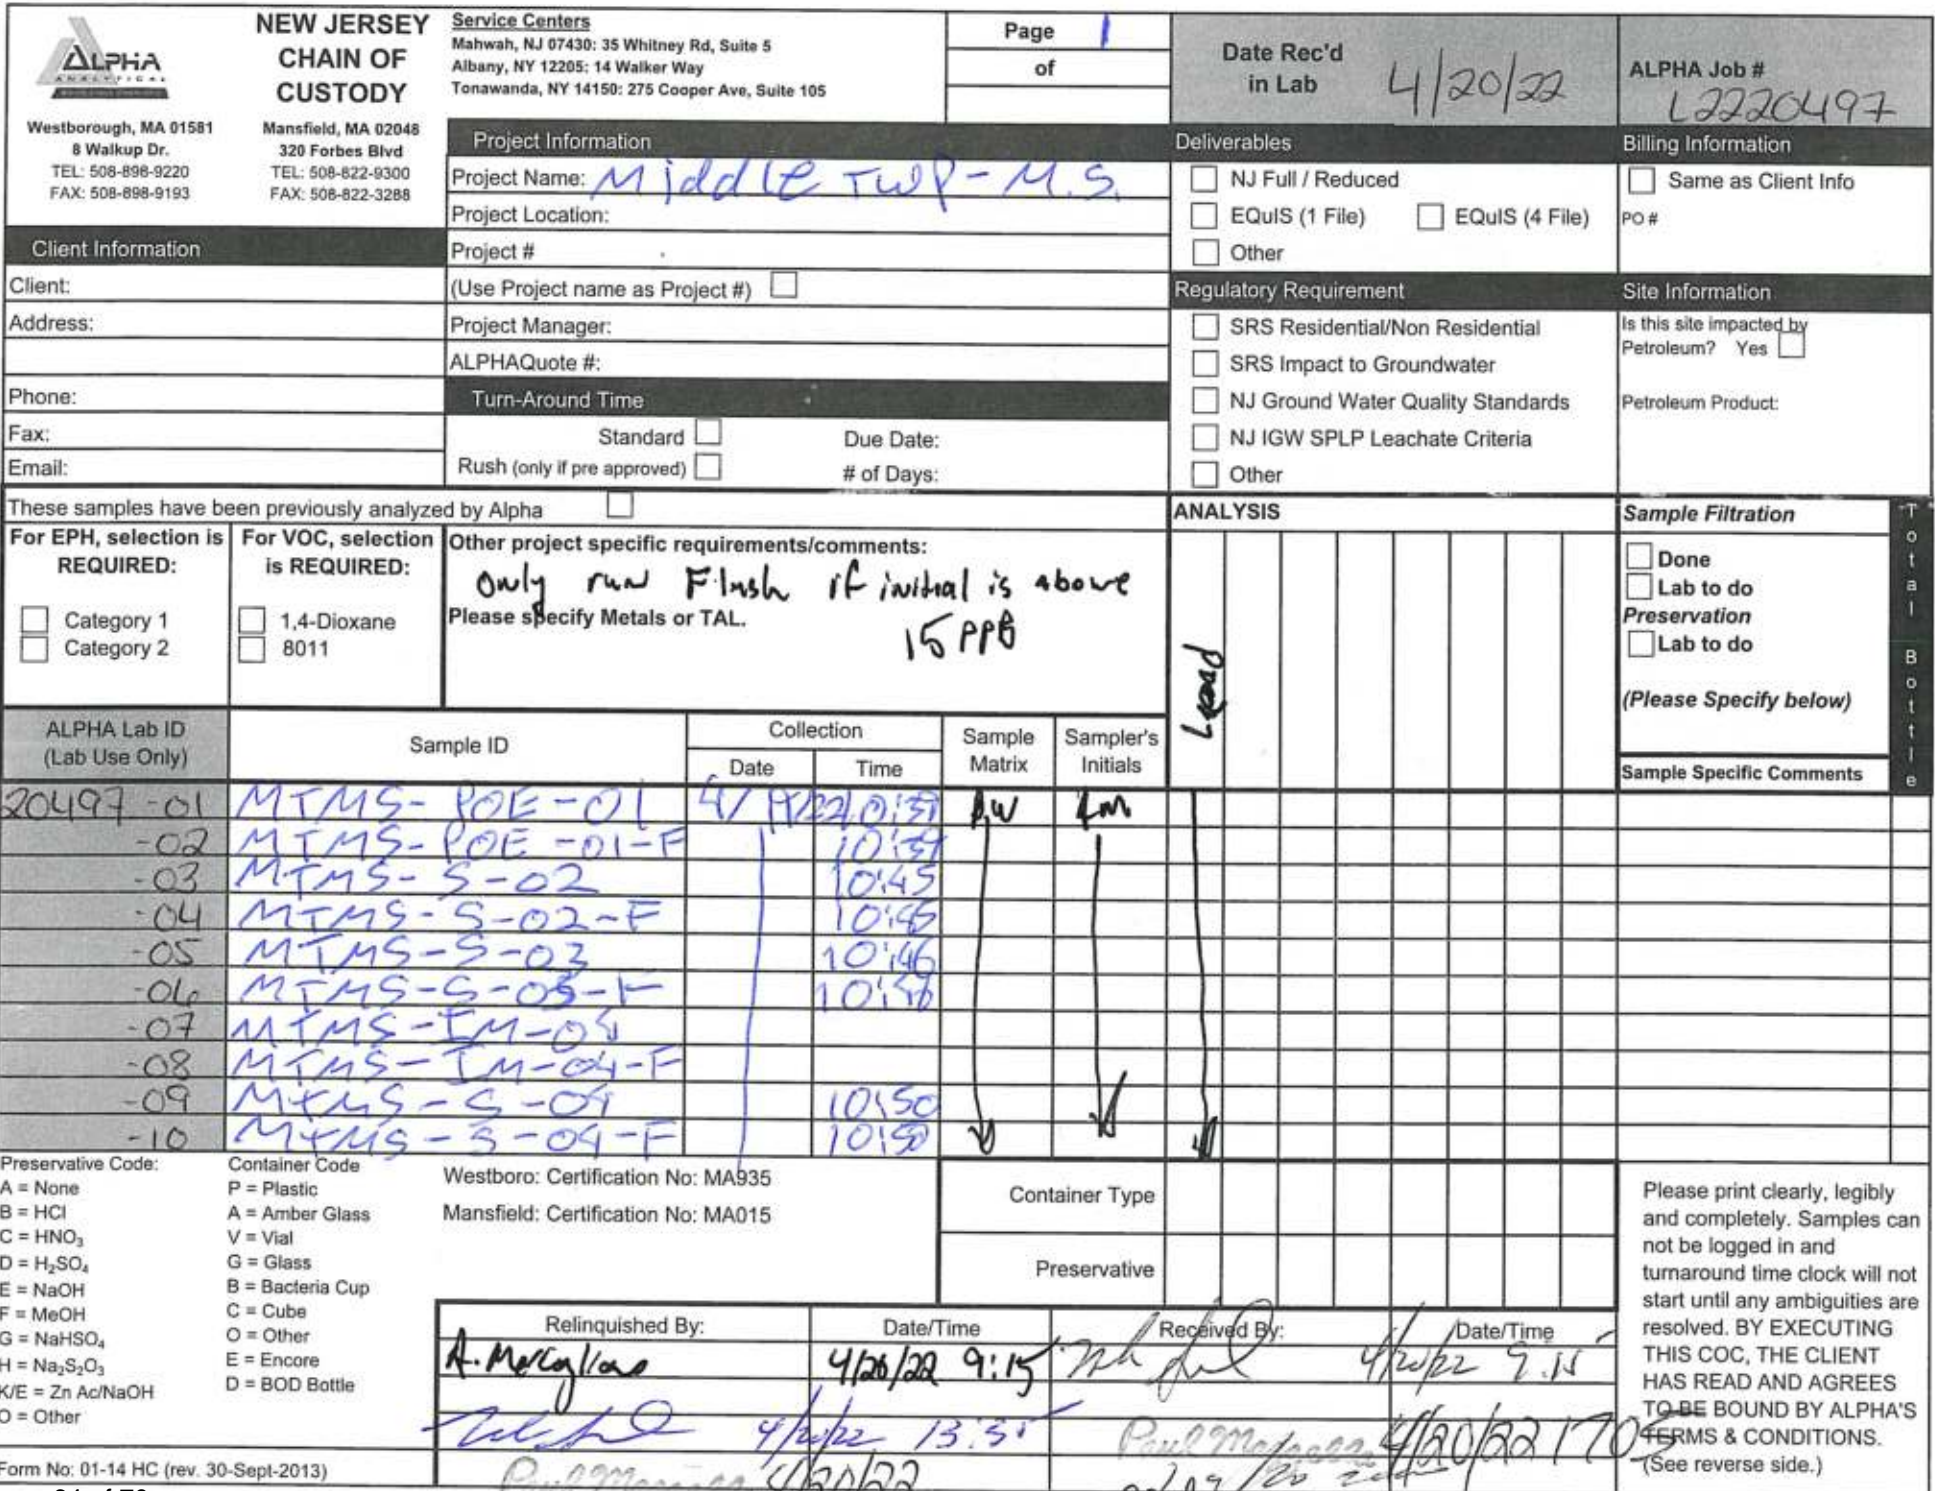 ALPHA
ANALYTICAL
Westborough, MA 01581
8 Walkup Dr.
TEL: 508-898-9220
FAX: 508-898-9193
NEW JERSEY
CHAIN OF
CUSTODY
Mansfield, MA 02048
320 Forbes Blvd
TEL: 508-822-9300
FAX: 508-822-3288
Service Centers
Mahwah, NJ 07430: 35 Whitney Rd, Suite 5
Albany, NY 12205: 14 Walker Way
Tonawanda, NY 14150: 275 Cooper Ave, Suite 105
Page 1
of
Date Rec'd
in Lab 4/20/22
ALPHA Job #
L2220497
Client Information
Client:
Address:
Phone:
Fax:
Email:
Project Information
Project Name: Middle TWP - M.S.
Project Location:
Project #
(Use Project name as Project #)
Project Manager:
ALPHAQuote #:
Turn-Around Time
Standard Due Date:
Rush (only if pre approved) # of Days:
Deliverables
NJ Full / Reduced
EQuIS (1 File) EQuIS (4 File)
Other
Regulatory Requirement
SRS Residential/Non Residential
SRS Impact to Groundwater
NJ Ground Water Quality Standards
NJ IGW SPLP Leachate Criteria
Other
Billing Information
Same as Client Info
PO #
Site Information
Is this site impacted by
Petroleum? Yes
Petroleum Product:
These samples have been previously analyzed by Alpha
For EPH, selection is
REQUIRED:
Category 1
Category 2
For VOC, selection
is REQUIRED:
1,4-Dioxane
8011
Other project specific requirements/comments:
Only run Flush if initial is above
Please specify Metals or TAL.
15 PPB
ANALYSIS
Lead
Sample Filtration
Done
Lab to do
Preservation
Lab to do
(Please Specify below)
Sample Specific Comments
Total Bottle
ALPHA Lab ID
(Lab Use Only)
Sample ID
Collection
Date Time
Sample
Matrix
Sampler's
Initials
20497-01 MTMS-POE-01 4/19/22 DW
-02 MTMS-POE-01-F 10:39
-03 MTMS-S-02 10:45
-04 MTMS-S-02-F 10:45
-05 MTMS-S-03 10:46
-06 MTMS-S-03-F 10:46
-07 MTMS-IM-04
-08 MTMS-IM-04-F
-09 MTMS-S-04 10:50
-10 MTMS-S-04-F 10:50
Preservative Code:
A = None
B = HCl
C = HNO3
D = H2SO4
E = NaOH
F = MeOH
G = NaHSO4
H = Na2S2O3
K/E = Zn Ac/NaOH
O = Other
Container Code
P = Plastic
A = Amber Glass
V = Vial
G = Glass
B = Bacteria Cup
C = Cube
O = Other
E = Encore
D = BOD Bottle
Westboro: Certification No: MA935
Mansfield: Certification No: MA015
Container Type
Preservative
Relinquished By: Date/Time Received By: Date/Time
4/20/22 9:15 4/20/22 9:15
4/20/22 4/20/22 1705
4/20/22
Please print clearly, legibly
and completely. Samples can
not be logged in and
turnaround time clock will not
start until any ambiguities are
resolved. BY EXECUTING
THIS COC, THE CLIENT
HAS READ AND AGREES
TO BE BOUND BY ALPHA'S
TERMS & CONDITIONS.
(See reverse side.)
Form No: 01-14 HC (rev. 30-Sept-2013)